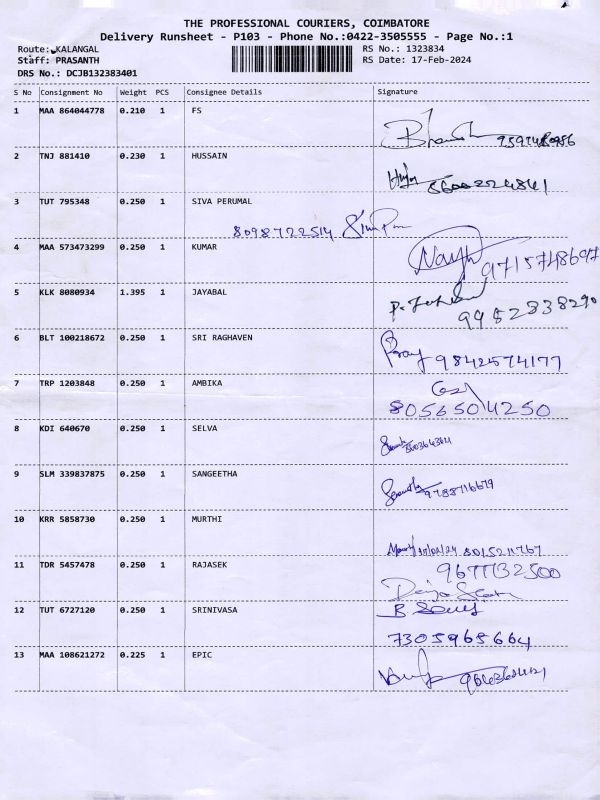 THE PROFESSIONAL COURIERS, COIMBATORE
Delivery Runsheet - P103 - Phone No.:0422-3505555 - Page No.:1
Route: KALANGAL RS No.: 1323834
Staff: PRASANTH RS Date: 17-Feb-2024
DRS No.: DCJB132383401
S No Consignment No Weight PCS Consignee Details Signature
1 MAA 864044778 0.210 1 FS
2 TNJ 881410 0.230 1 HUSSAIN
3 TUT 795348 0.250 1 SIVA PERUMAL
8098722514
4 MAA 573473299 0.250 1 KUMAR
9715748697
5 KLK 8080934 1.395 1 JAYABAL
9952838290
6 BLT 100218672 0.250 1 SRI RAGHAVEN
9842574177
7 TRP 1203848 0.250 1 AMBIKA
8056504250
8 KDI 640670 0.250 1 SELVA
9 SLM 339837875 0.250 1 SANGEETHA
9788716679
10 KRR 5858730 0.250 1 MURTHI
11 TDR 5457478 0.250 1 RAJASEK
9677132500
12 TUT 6727120 0.250 1 SRINIVASA
7305965664
13 MAA 108621272 0.225 1 EPIC